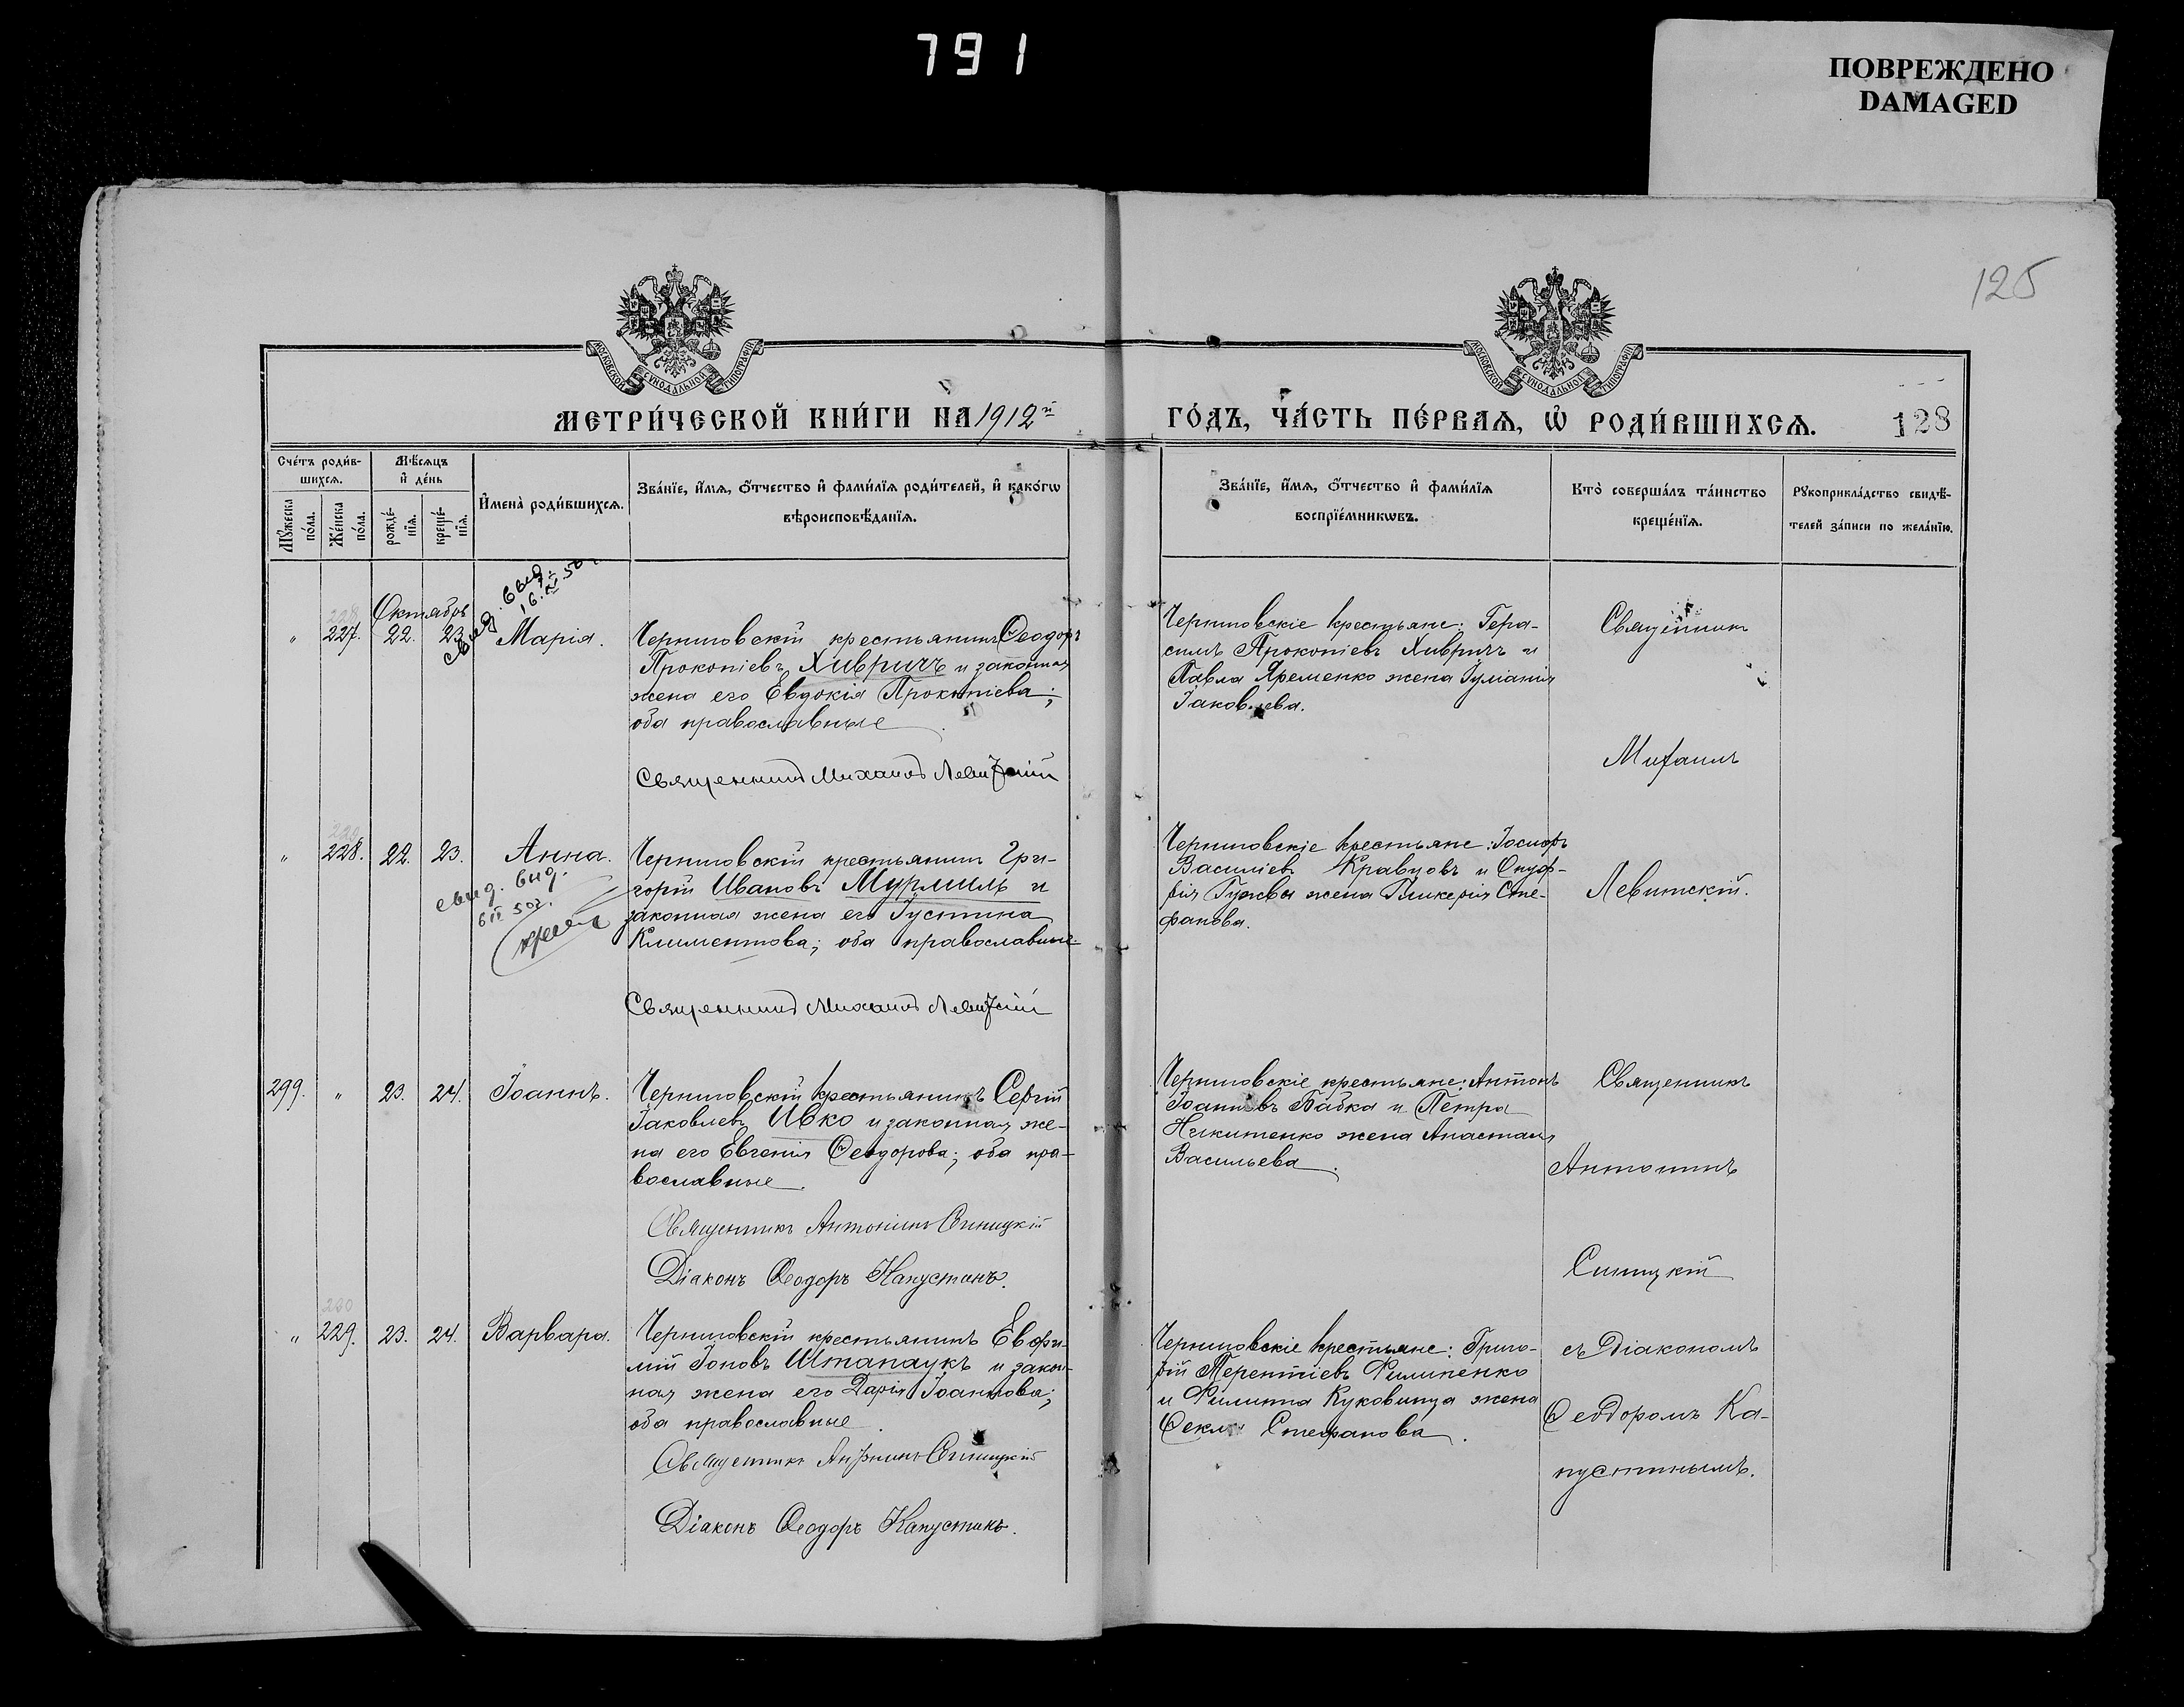 791
ПОВРЕЖДЕНО
DAMAGED
125
МОСКОВСКОЙ СѴНОДАЛЬНОЙ ТИПОГРАФІИ
МОСКОВСКОЙ СѴНОДАЛЬНОЙ ТИПОГРАФІИ
МЕТРИ́ЧЕСКОЙ КНИ́ГИ НА 1912й
ГО́ДЪ, ЧА́СТЬ ПЕ́РВАѦ, Ѡ҆ РОДИ́ВШИХСѦ.
128
Сче́тъ роди́в-
шихсѧ.
Мꙋ́жеска по́ла.
Же́нска по́ла.
Мѣ́сѧцъ
и҆ де́нь
рожде́нїѧ.
креще́нїѧ.
И҆мена̀ роди́вшихсѧ.
Зва́нїе, и҆́мѧ, ѻ҆́тчество и҆ фами́лїѧ роди́телей, и҆ како́гѡ
вѣроисповѣ́данїѧ.
Зва́нїе, и҆́мѧ, ѻ҆́тчество и҆ фами́лїѧ
воспрїе́мникѡвъ.
Кто̀ соверша́лъ та́инство
креще́нїѧ.
Рꙋкоприкла́дство свидѣ́-
телей за́писи по жела́нїю.
Октябрь
" 227. 22. 23. Марія.
Черниговскій крестьянинъ Ѳеодоръ
Прокопіевъ Хивричъ и законная
жена его Евдокія Прокопіева;
оба православные
Священникъ Михаилъ Левитскій
Черниговскіе крестьяне: Гера-
симъ Прокопіевъ Хивричъ и
Павла Яременко жена Іуліанія
Іаковлева.
Священникъ
Михаилъ
Левитскій.
229
" 228. 22. 23. Анна.
свид. выд.
6 II 50г.
Черниговскій крестьянинъ Гри-
горій Ивановъ Мурмиль и
законная жена его Іустина
Климентова; оба православные.
Священникъ Михаилъ Левитскій
Черниговскіе крестьяне: Іосифъ
Василіевъ Кравцовъ и Онуф-
рія Гужвы жена Гликерія Сте-
фанова.
299. " 23. 24. Іоаннъ.
Черниговскій крестьянинъ Сергій
Іаковлевъ Ивко и законная же-
на его Евгенія Ѳеодорова; оба пра-
вославные.
Священникъ Антонинъ Синицкій
Діаконъ Ѳеодоръ Капустинъ.
Черниговскіе крестьяне: Антонъ
Іоанновъ Бабка и Петра
Никитенко жена Анастасія
Васильева.
Священникъ
Антонинъ
Синицкій
230
" 229. 23. 24. Варвара.
Черниговскій крестьянинъ Евфи-
мій Іоновъ Штапаукъ и закон-
ная жена его Дарія Іоаннова;
оба православные.
Священникъ Антонинъ Синицкій
Діаконъ Ѳеодоръ Капустинъ.
Черниговскіе крестьяне: Григо-
рій Терентіевъ Филипенко
и Филиппа Куковинца жена
Ѳекла Стефанова.
съ Діакономъ
Ѳеодоромъ Ка-
пустинымъ.